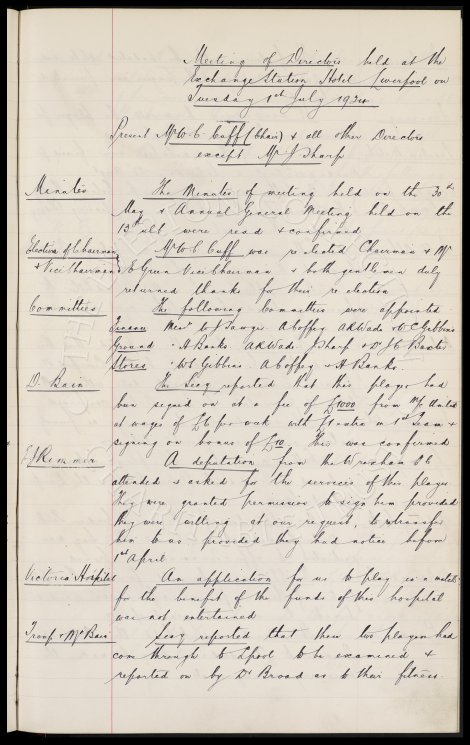 Meeting of Directors held at the
Exchange Station Hotel Liverpool on
Tuesday 1st July 1924
Present Mr W C Cuff (Chair) & all other Directors
except Mr J Sharp
Minutes The Minutes of meeting held on the 30th
May & Annual General Meeting held on the
13th ult were read & confirmed
Election of Chairman Mr W C Cuff was re-elected Chairman & Mr
& Vice Chairman E Green Vice Chairman & both gentlemen duly
returned thanks for their re election
Committees The following Committees were appointed
Finance Mess W J Sawyer A Coffey A R Wade & W C Gibbins
Ground " H Banks A R Wade J Sharp & Dr J C Baxter
Stores " W C Gibbins A Coffey & H Banks
D. Bain The Secy reported that this player had
been signed on at a fee of £1000 from M/c United
at wages of £6 per week with £1 extra in 1st Team &
signing on bonus of £10. This was confirmed
E J Rimmer A deputation from the Wrexham F C
attended & asked for the services of this player
They were granted permission to sign him provided
they were willing at our request, to retransfer
him to us provided they had notice before
1st April
Victoria Hospital An application for us to play in a match
for the benefit of the funds of this hospital
was not entertained
Troup & McBain Secy reported that these two players had
come through to Lpool to be examined &
reported on by Dr Broad as to their fitness